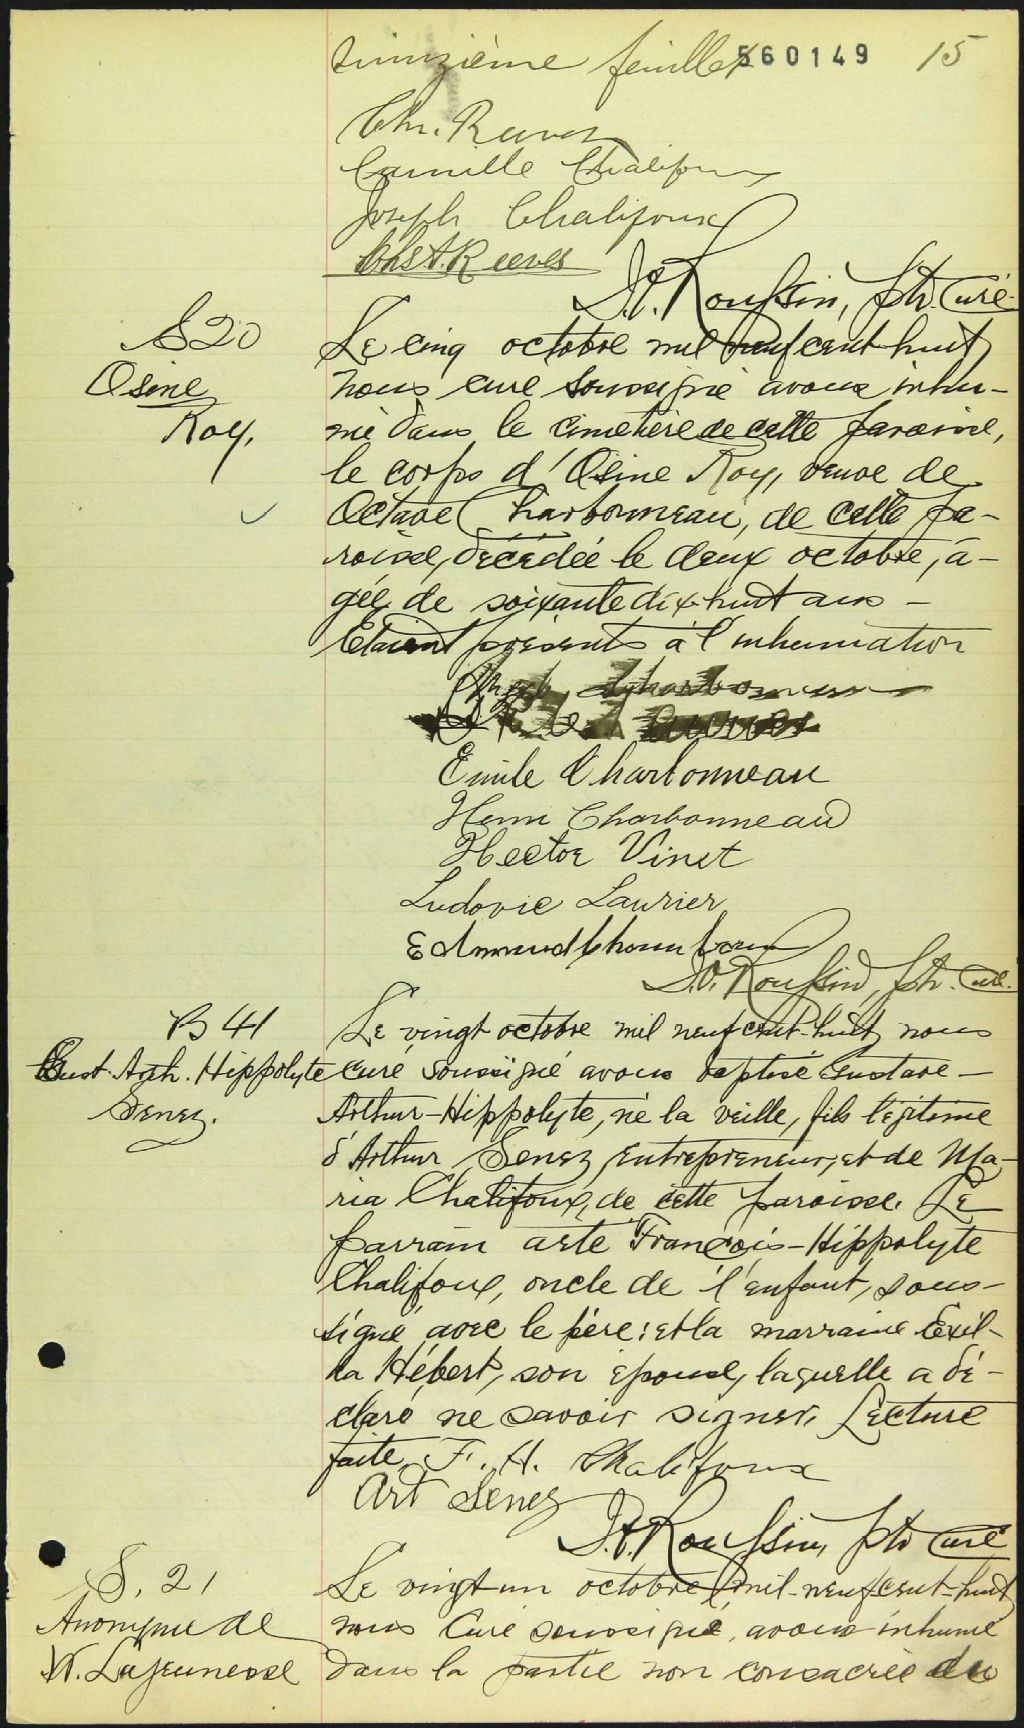 Quinzième feuillet 560149 15
Chs. Reeves
Camille Chalifoux
Joseph Chalifoux
Chs A. Reeves
J. O. Roussin, ptr. Curé
S 20
Osine
Roy,
Le cinq octobre mil neuf cent huit
nous curé soussigné avons inhu-
mé dans le cimetière de cette paroisse,
le corps d'Osine Roy, veuve de
Octave Charbonneau, de cette pa-
roisse, décédée le deux octobre, â-
gée de soixante dix-huit ans –
Etaient présents à l'inhumation
Charbonneau
Emile Charbonneau
Henri Charbonneau
Hector Vinet
Ludovic Laurier
Edmond
J. O. Roussin, ptr. Curé.
B 41
Gust. Arth. Hippolyte
Senez.
Le vingt octobre mil neuf cent-huit, nous
curé soussigné avons baptisé Gustave –
Arthur-Hippolyte, né la veille, fils légitime
d'Arthur Senez, Entrepreneur, et de Ma-
ria Chalifoux, de cette paroisse. Le
parrain a été François-Hippolyte
Chalifoux, oncle de l'enfant, sous-
signé avec le père: et la marraine Exil-
da Hébert, son épouse, laquelle a dé-
claré ne savoir signer. Lecture
faite. F. H. Chalifoux
Art Senez
J. O. Roussin, ptr Curé
S. 21
Anonyme de
W. Lajeunesse
Le vingt un octobre mil-neuf cent-huit
nous Curé soussigné, avons inhumé
dans la partie non consacrée du